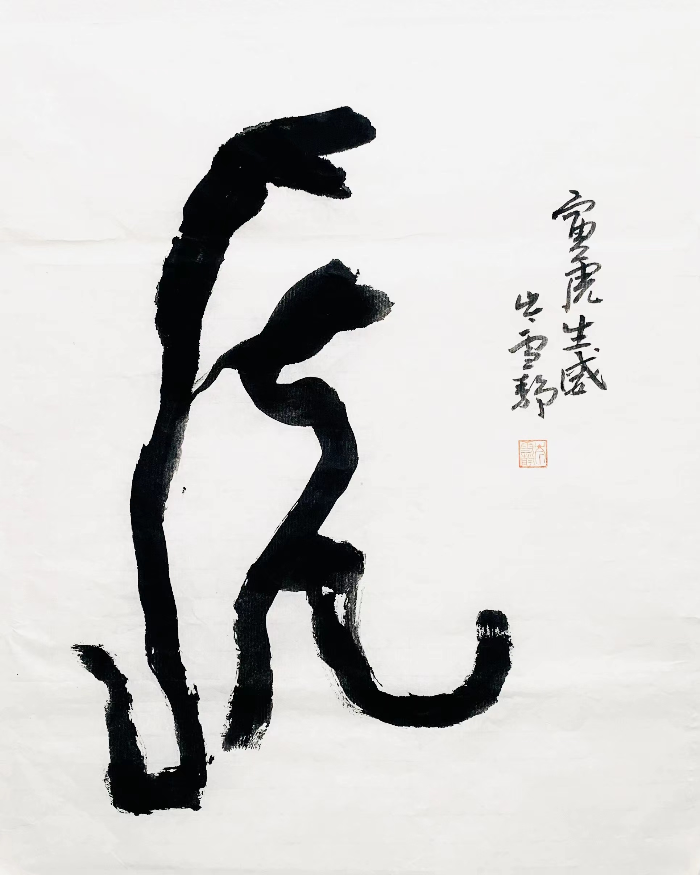 虎
寅虎生威
雪静